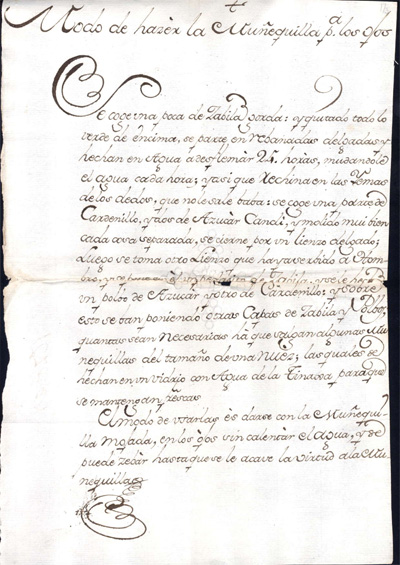 Modo de hazèr la Muñequilla p.a los ojos
Se coge una poca de Zabila gorda: y quitado todo lo
verde de encima, se parte en rebanadas delgadas y
hechan en Agua a deserlemar 24. horas, mudandole
el agua cada hora; y asi que rechina en las Yemas
de los dedos, que no le sale baba: se coge una parte de
Cardenillo, y dos de Azucàr Candi, y molido mui bien
cada cosa separada, se cierne, por un lienzo delgado;
Luego se toma otro Lienzo que haya servido en
y se le
un polvo de Azucar y otro de Cardenillo: y sobre
esto se van poniendo otras Capas de Zabila y Polvo,
quantas seàn necesarias hà que salgan algunas Mu
ñequillas del tamaño de una Nuez; las quales se
hechan en un vidrio con Agua de la Tinaja para que
se mantengan frescas
El modo de usarlas ès darse con la Muñequi-
lla mojada, en los ojos sin calentàr el agua, y se
puede
hasta que se le acave la virtud a la Mu
ñequilla